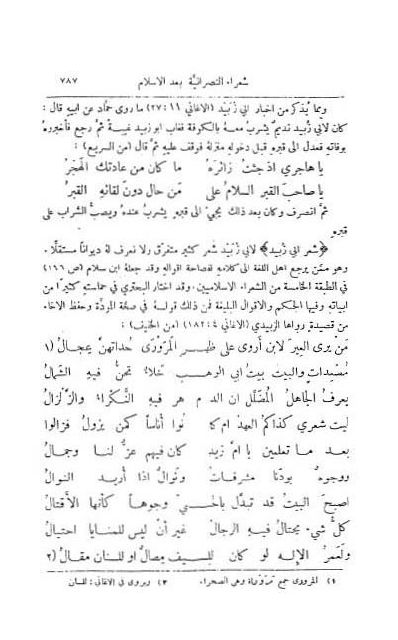 شعراء النصرانيَّة بعد الاسلام ٧٨٧
ومما يُذكر من اخبار ابي زُبَيد (الاغاني ١١:٢٧) ما روى حمَّاد عن ابيهِ قال:
كان لابي زُبيد نديمٌ يشربُ معهُ بالكوفة فغاب ابو زبيد غيبةً ثمَّ رجع فأُخبر
بوفاتهِ فعدل الى قبرهِ قبل دخولهِ منزلهُ فوقف عليهِ ثمَّ قال (من السريع):
يا هاجري اذ جئتُ زائرَهُ ما كان من عادتك الهَجْرُ
يا صاحبَ القبر السلامُ على مَن حال دونَ لقائهِ القبرُ
ثمَّ انصرف وكان بعد ذلك يجيُ الى قبرهِ يشربُ عندهُ ويصبُّ الشراب على
قبرهِ
﴿شعر ابي زُبيد﴾ لابي زُبَيد شعر كثير متفرّق ولا نعرف لهُ ديواناً مستقلًا.
وهو ممَّن يرجع اهل اللغة الى كلامهِ لفصاحة اقوالهِ وقد جعلهُ ابن سلام (ص ١٦٦)
في الطبقة الخامسة من الشعراء الاسلاميين. وقد اختار البحتري في حماستهِ كثيرًا من
ابياتهِ وفيها الحِكَم والاقوال البليغة فمن ذلك قولهُ في صفة المودَّة وحفظ الاخاء
من قصيدة رواها الزبيدي (الاغاني ١٨٢:٤) (من الخفيف):
مَن يرى العِيرَ لابن أَروى على ظهـر المَرَوْرَى حُداتهنَّ عِجالُ (١
مُصْعِداتٍ والبيتُ بيتُ ابي الوهـب خلاءٌ تحنُّ فيهِ الشمالُ
يعرفُ الجاهلُ المضلَّل ان الدهـر فيهِ النَّكْراءُ والزِّلزالُ
ليت شعري كذاكمُ العهدُ ام كا نوا أناساً كمن يزولُ فزالوا
بعد ما تعلمين يا امَّ زيد كان فيهم عزٌّ لنا وجمالُ
ووجوهٌ بودّنا مشرقاتٌ ونوالٌ اذا أُريد النوالُ
اصبح البيتُ قد تبدَّل بالحيّ وجوهاً كأنها الأَقتالُ
كلُّ شيء يحتالُ فيهِ الرجالُ غير أَنْ ليس للمنايا احتيالُ
ولَعَمْرُ الإلهِ لو كان للسيف مِصالٌ او للسان مقالُ (٢
١) المرورى جمع مَرَوراة وهي الصحراء. ٢) ويروى في الاغاني: للسان